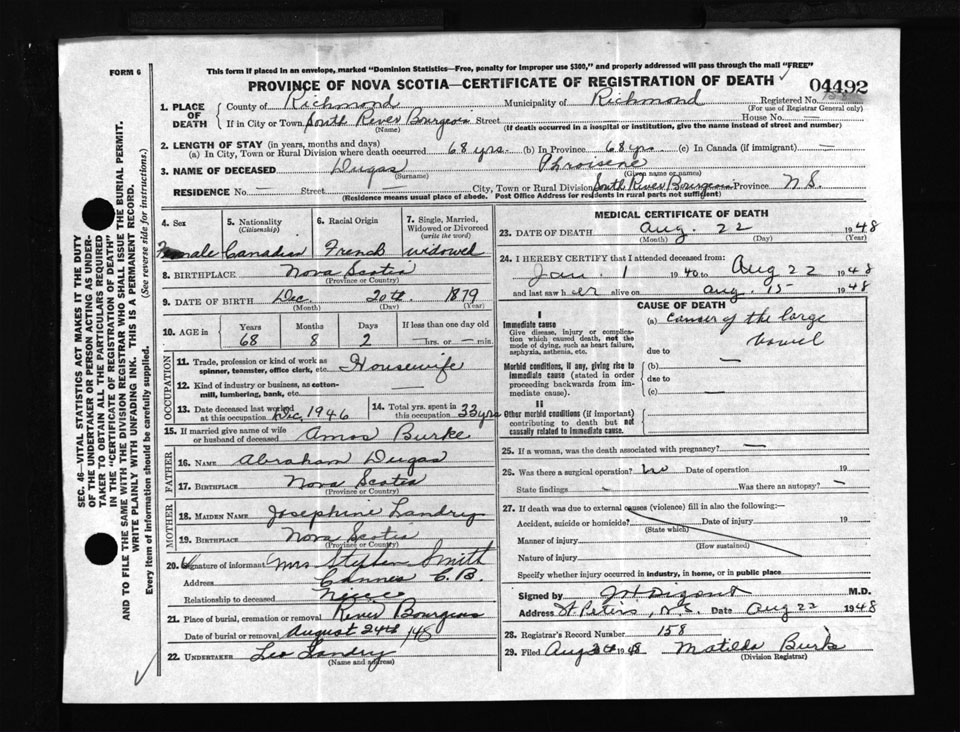 FORM 6
This form if placed in an envelope, marked "Dominion Statistics—Free, penalty for improper use $300," and properly addressed will pass through the mail "FREE"
PROVINCE OF NOVA SCOTIA—CERTIFICATE OF REGISTRATION OF DEATH
04492
1. PLACE OF DEATH
County of Richmond Municipality of Richmond Registered No.
(For use of Registrar General only)
If in City or Town South River Bourgeois Street House No. —
(Name) (If death occurred in a hospital or institution, give the name instead of street and number)
2. LENGTH OF STAY (in years, months and days)
(a) In City, Town or Rural Division where death occurred 68 yrs. (b) In Province 68 yrs. (c) In Canada (if immigrant) —
3. NAME OF DECEASED Dugas Phroisene
(Surname) (Given name or names)
RESIDENCE No. — Street — City, Town or Rural Division South River Bourgeois Province N.S.
(Residence means usual place of abode. Post Office Address for residents in rural parts not sufficient)
4. Sex 5. Nationality (Citizenship) 6. Racial Origin 7. Single, Married, Widowed or Divorced (write the word)
Female Canadian French widowed
8. BIRTHPLACE Nova Scotia
(Province or Country)
9. DATE OF BIRTH Dec. 20th 1879
(Month) (Day) (Year)
10. AGE in Years Months Days If less than one day old
68 8 2 —hrs. or — min.
OCCUPATION
11. Trade, profession or kind of work as spinner, teamster, office clerk, etc. Housewife
12. Kind of industry or business, as cotton-mill, lumbering, bank, etc. —
13. Date deceased last worked at this occupation Dec, 1946 14. Total yrs. spent in this occupation 33 yrs
15. If married give name of wife or husband of deceased Amos Burke
FATHER
16. NAME Abraham Dugas
17. BIRTHPLACE Nova Scotia
(Province or Country)
MOTHER
18. MAIDEN NAME Josephine Landry
19. BIRTHPLACE Nova Scotia
(Province or Country)
20. Signature of informant Mrs Stephen Smith
Address Cannes C.B.
Relationship to deceased Niece
21. Place of burial, cremation or removal River Bourgeois
Date of burial or removal August 24th /48
22. UNDERTAKER Leo Landry
(Name and address)
MEDICAL CERTIFICATE OF DEATH
23. DATE OF DEATH Aug. 22 1948
(Month) (Day) (Year)
24. I HEREBY CERTIFY that I attended deceased from:
Jan. 1 1940 to Aug 22 1948
and last saw her alive on Aug. 15 - 1948
CAUSE OF DEATH
I
Immediate cause
Give disease, injury or complication which caused death, not the mode of dying, such as heart failure, asphyxia, asthenia, etc.
(a) Cancer of the large bowel
due to
Morbid conditions, if any, giving rise to immediate cause (stated in order proceeding backwards from immediate cause).
(b) —
due to
(c) —
II
Other morbid conditions (if important) contributing to death but not causally related to immediate cause.
25. If a woman, was the death associated with pregnancy? —
26. Was there a surgical operation? no Date of operation 19
State findings — Was there an autopsy? —
27. If death was due to external causes (violence) fill in also the following:—
Accident, suicide or homicide? Date of injury 19
(State which)
Manner of injury
(How sustained)
Nature of injury
Specify whether injury occurred in industry, in home, or in public place
Signed by M.D.
Address St. Peters, N.S. Date Aug 22 1948
28. Registrar's Record Number 158
29. Filed Aug 1948 Matilda Burke
(Division Registrar)
SEC. 46—VITAL STATISTICS ACT MAKES IT THE DUTY
OF THE UNDERTAKER OR PERSON ACTING AS UNDER-
TAKER TO OBTAIN ALL THE PARTICULARS REQUIRED
IN THE "CERTIFICATE OF REGISTRATION OF DEATH"
AND TO FILE THE SAME WITH THE DIVISION REGISTRAR WHO SHALL ISSUE THE BURIAL PERMIT.
WRITE PLAINLY WITH UNFADING INK. THIS IS A PERMANENT RECORD.
Every item of information should be carefully supplied. (See reverse side for instructions.)